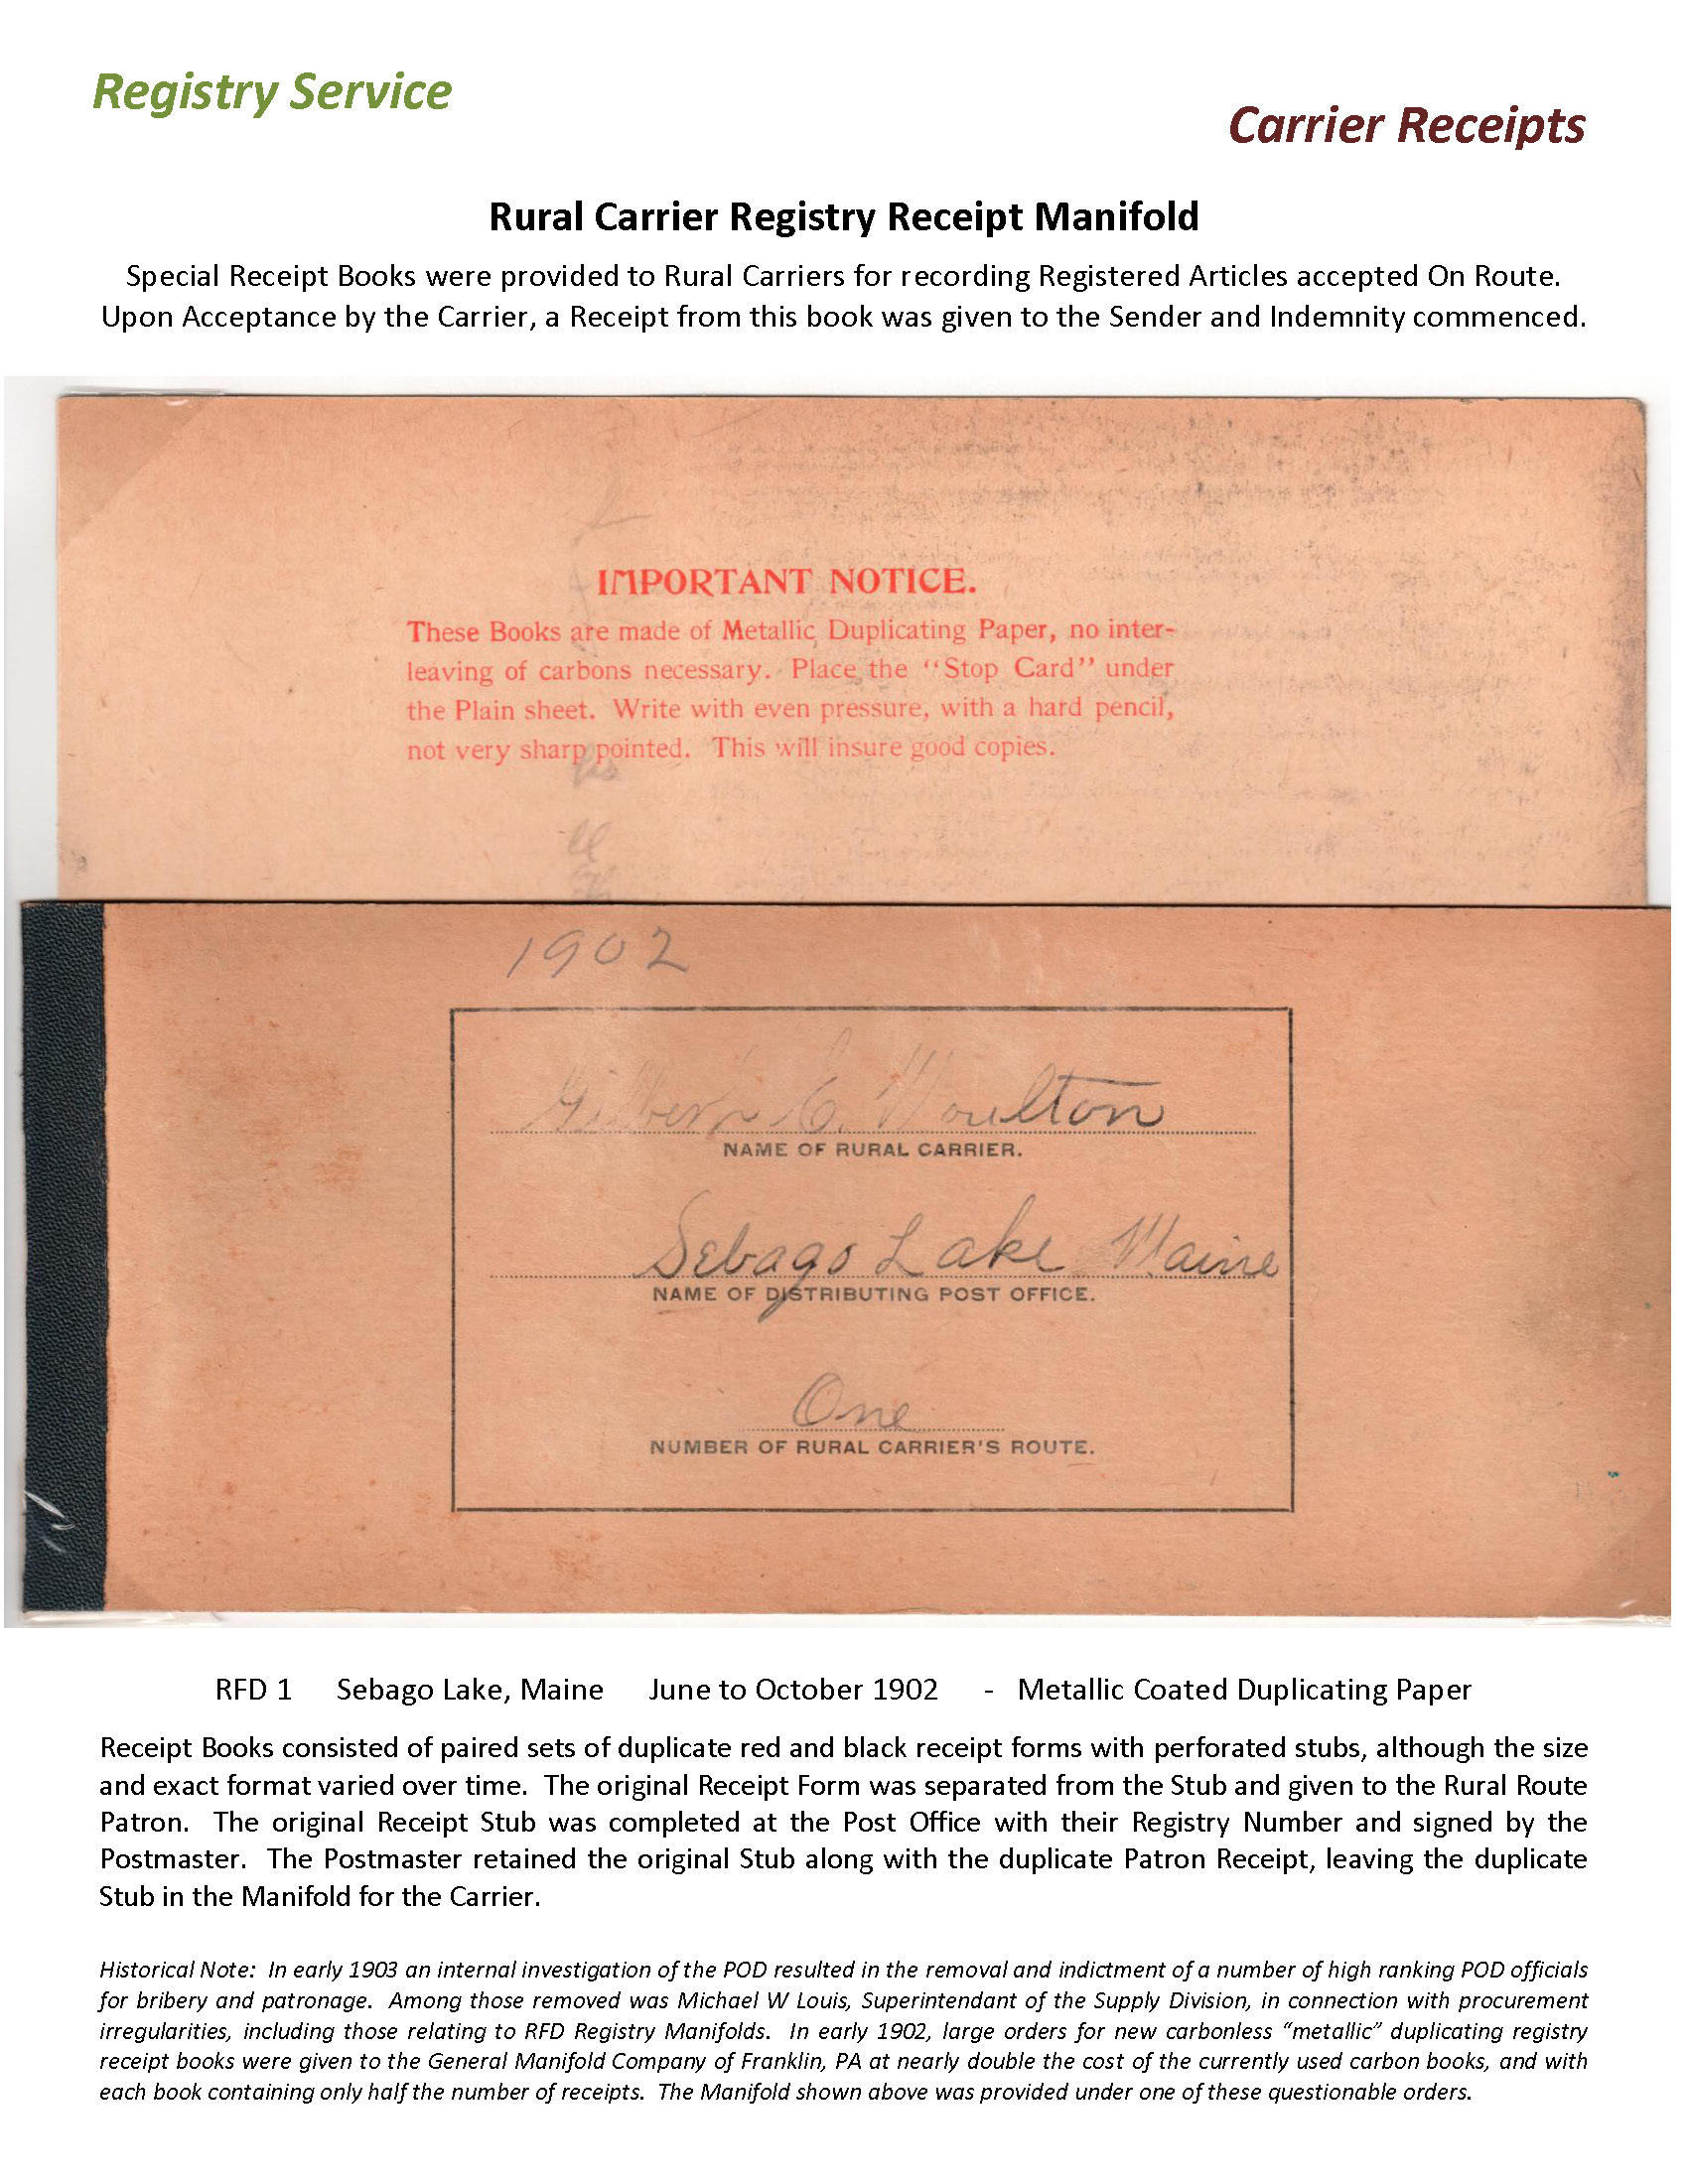 Registry Service
Carrier Receipts
Rural Carrier Registry Receipt Manifold
Special Receipt Books were provided to Rural Carriers for recording Registered Articles accepted On Route.
Upon Acceptance by the Carrier, a Receipt from this book was given to the Sender and Indemnity commenced.
IMPORTANT NOTICE.
These Books are made of Metallic Duplicating Paper, no inter-
leaving of carbons necessary. Place the "Stop Card" under
the Plain sheet. Write with even pressure, with a hard pencil,
not very sharp pointed. This will insure good copies.
1902
Gilbern C. Moulton
NAME OF RURAL CARRIER.
Sebago Lake Maine
NAME OF DISTRIBUTING POST OFFICE.
One
NUMBER OF RURAL CARRIER'S ROUTE.
RFD 1 Sebago Lake, Maine June to October 1902 - Metallic Coated Duplicating Paper
Receipt Books consisted of paired sets of duplicate red and black receipt forms with perforated stubs, although the size
and exact format varied over time. The original Receipt Form was separated from the Stub and given to the Rural Route
Patron. The original Receipt Stub was completed at the Post Office with their Registry Number and signed by the
Postmaster. The Postmaster retained the original Stub along with the duplicate Patron Receipt, leaving the duplicate
Stub in the Manifold for the Carrier.
Historical Note: In early 1903 an internal investigation of the POD resulted in the removal and indictment of a number of high ranking POD officials
for bribery and patronage. Among those removed was Michael W Louis, Superintendant of the Supply Division, in connection with procurement
irregularities, including those relating to RFD Registry Manifolds. In early 1902, large orders for new carbonless "metallic" duplicating registry
receipt books were given to the General Manifold Company of Franklin, PA at nearly double the cost of the currently used carbon books, and with
each book containing only half the number of receipts. The Manifold shown above was provided under one of these questionable orders.